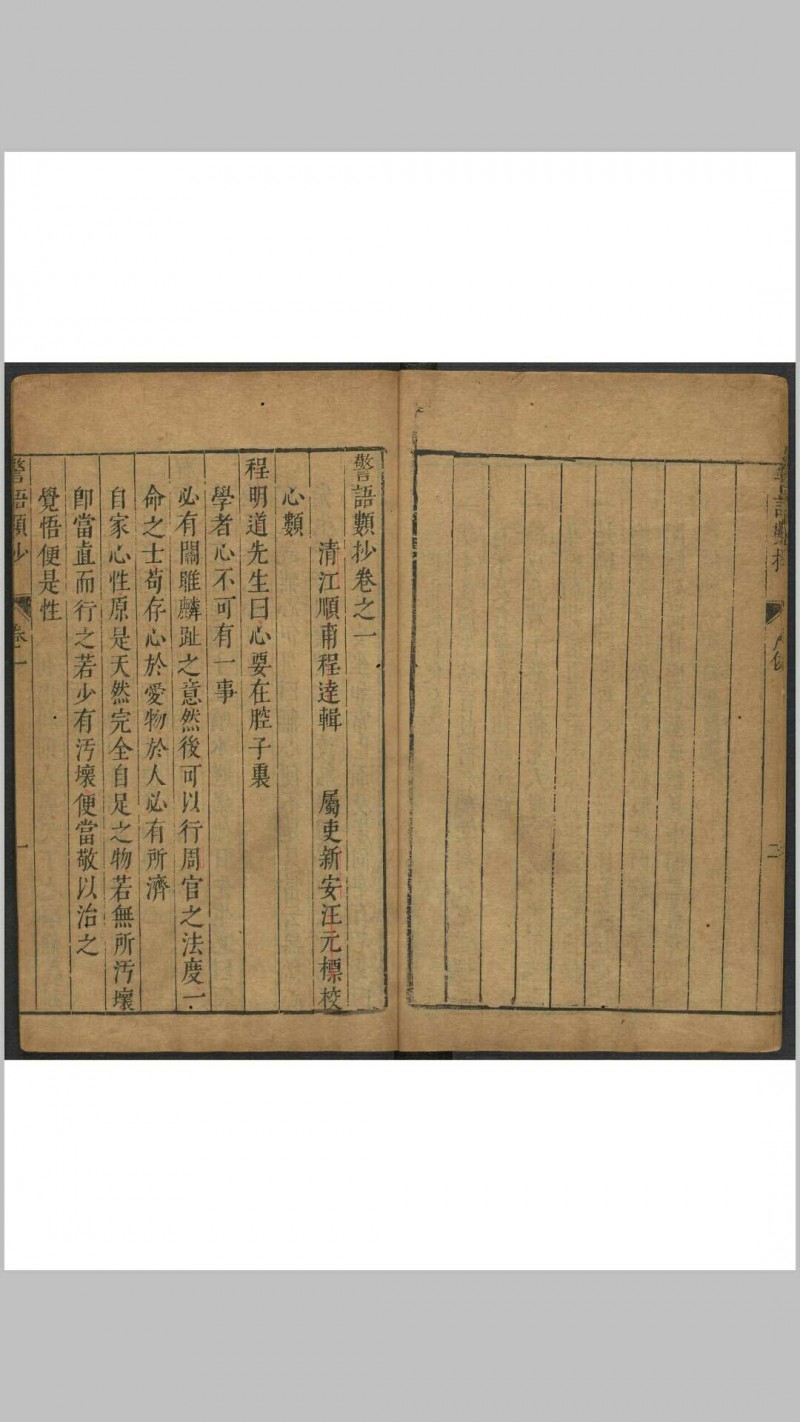 警語類抄
凡例
二
警語類抄卷之一
清江順甫程達輯 屬吏新安汪元標校
心類
程明道先生曰心要在腔子裏
學者心不可有一事
必有關雎麟趾之意然後可以行周官之法度一
命之士苟存心於愛物於人必有所濟
自家心性原是天然完全自足之物若無所汚壞
卽當直而行之若少有汚壞便當敬以治之
覺悟便是性
警語類抄
卷一
一